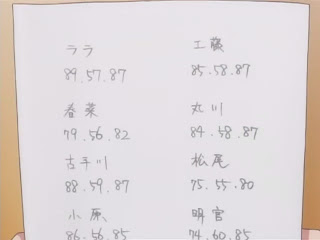 ララ
89.57.87
春菜
79.56.82
古手川
88.59.87
小原
86.56.85
工藤
85.58.87
丸川
84.58.87
松尾
75.55.80
明宮
74.60.85